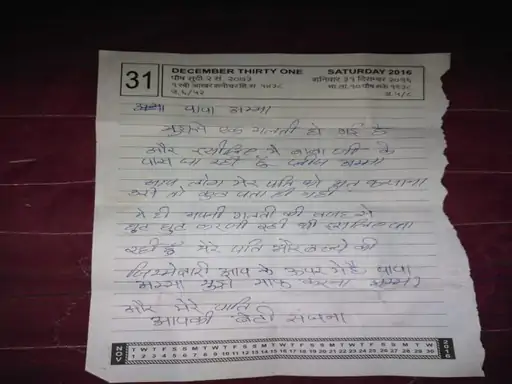 31
DECEMBER THIRTY ONE SATURDAY 2016
पौष सुदी २ सं. २०७३ शनिवार ३१ दिसम्बर २०१६
पापा मम्मा
मुझसे एक गलती हो गई है
और इसीलिए मैं के
पास जा रही हूँ प्लीज मम्मा
आप लोग मेरे पति को मत
तो कुछ पता ही नही
मै ही अपनी गलती की वजह से
घुट घुट
रही हूं मेरे पति और बच्चो की
जिम्मेदारी आप के ऊपर में है पापा
मम्मा मुझे माफ करना मम्मा
और मेरे पति
आपकी बेटी संजना
NOV T W T F S S M T W T F S S M T W T F S S M T W T F S S M T W 2016
1 2 3 4 5 6 7 8 9 10 11 12 13 14 15 16 17 18 19 20 21 22 23 24 25 26 27 28 29 30